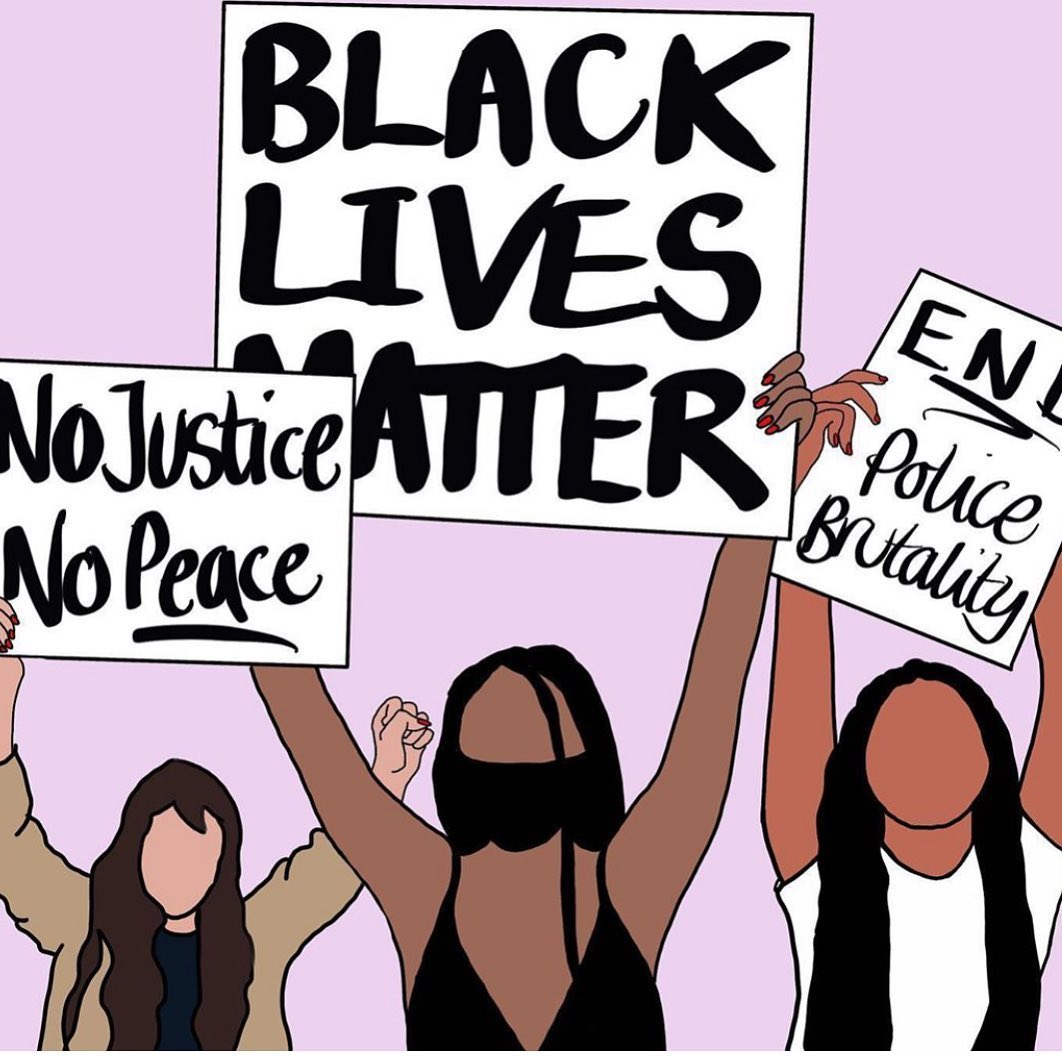 BLACK
LIVES
MATTER
No Justice
No Peace
END
Police
Brutality